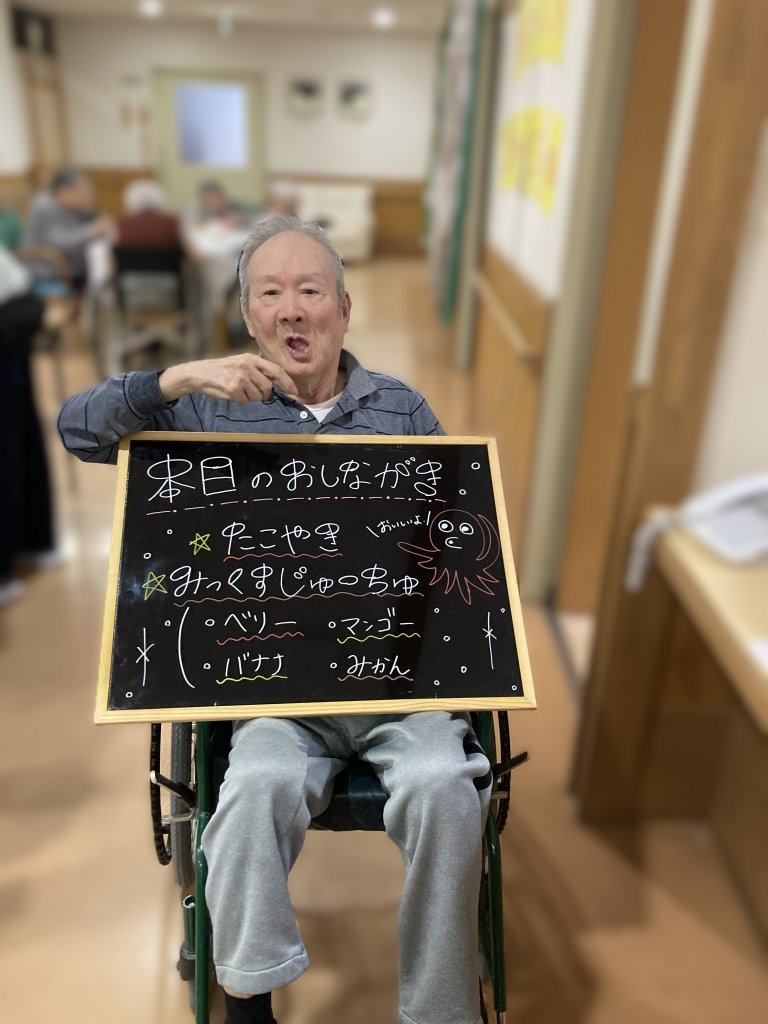 本日のおしながき
☆たこやき
\おいしいよ!/
☆みっくすじゅーちゅ
(◦ベリー ◦マンゴー
◦バナナ ◦みかん